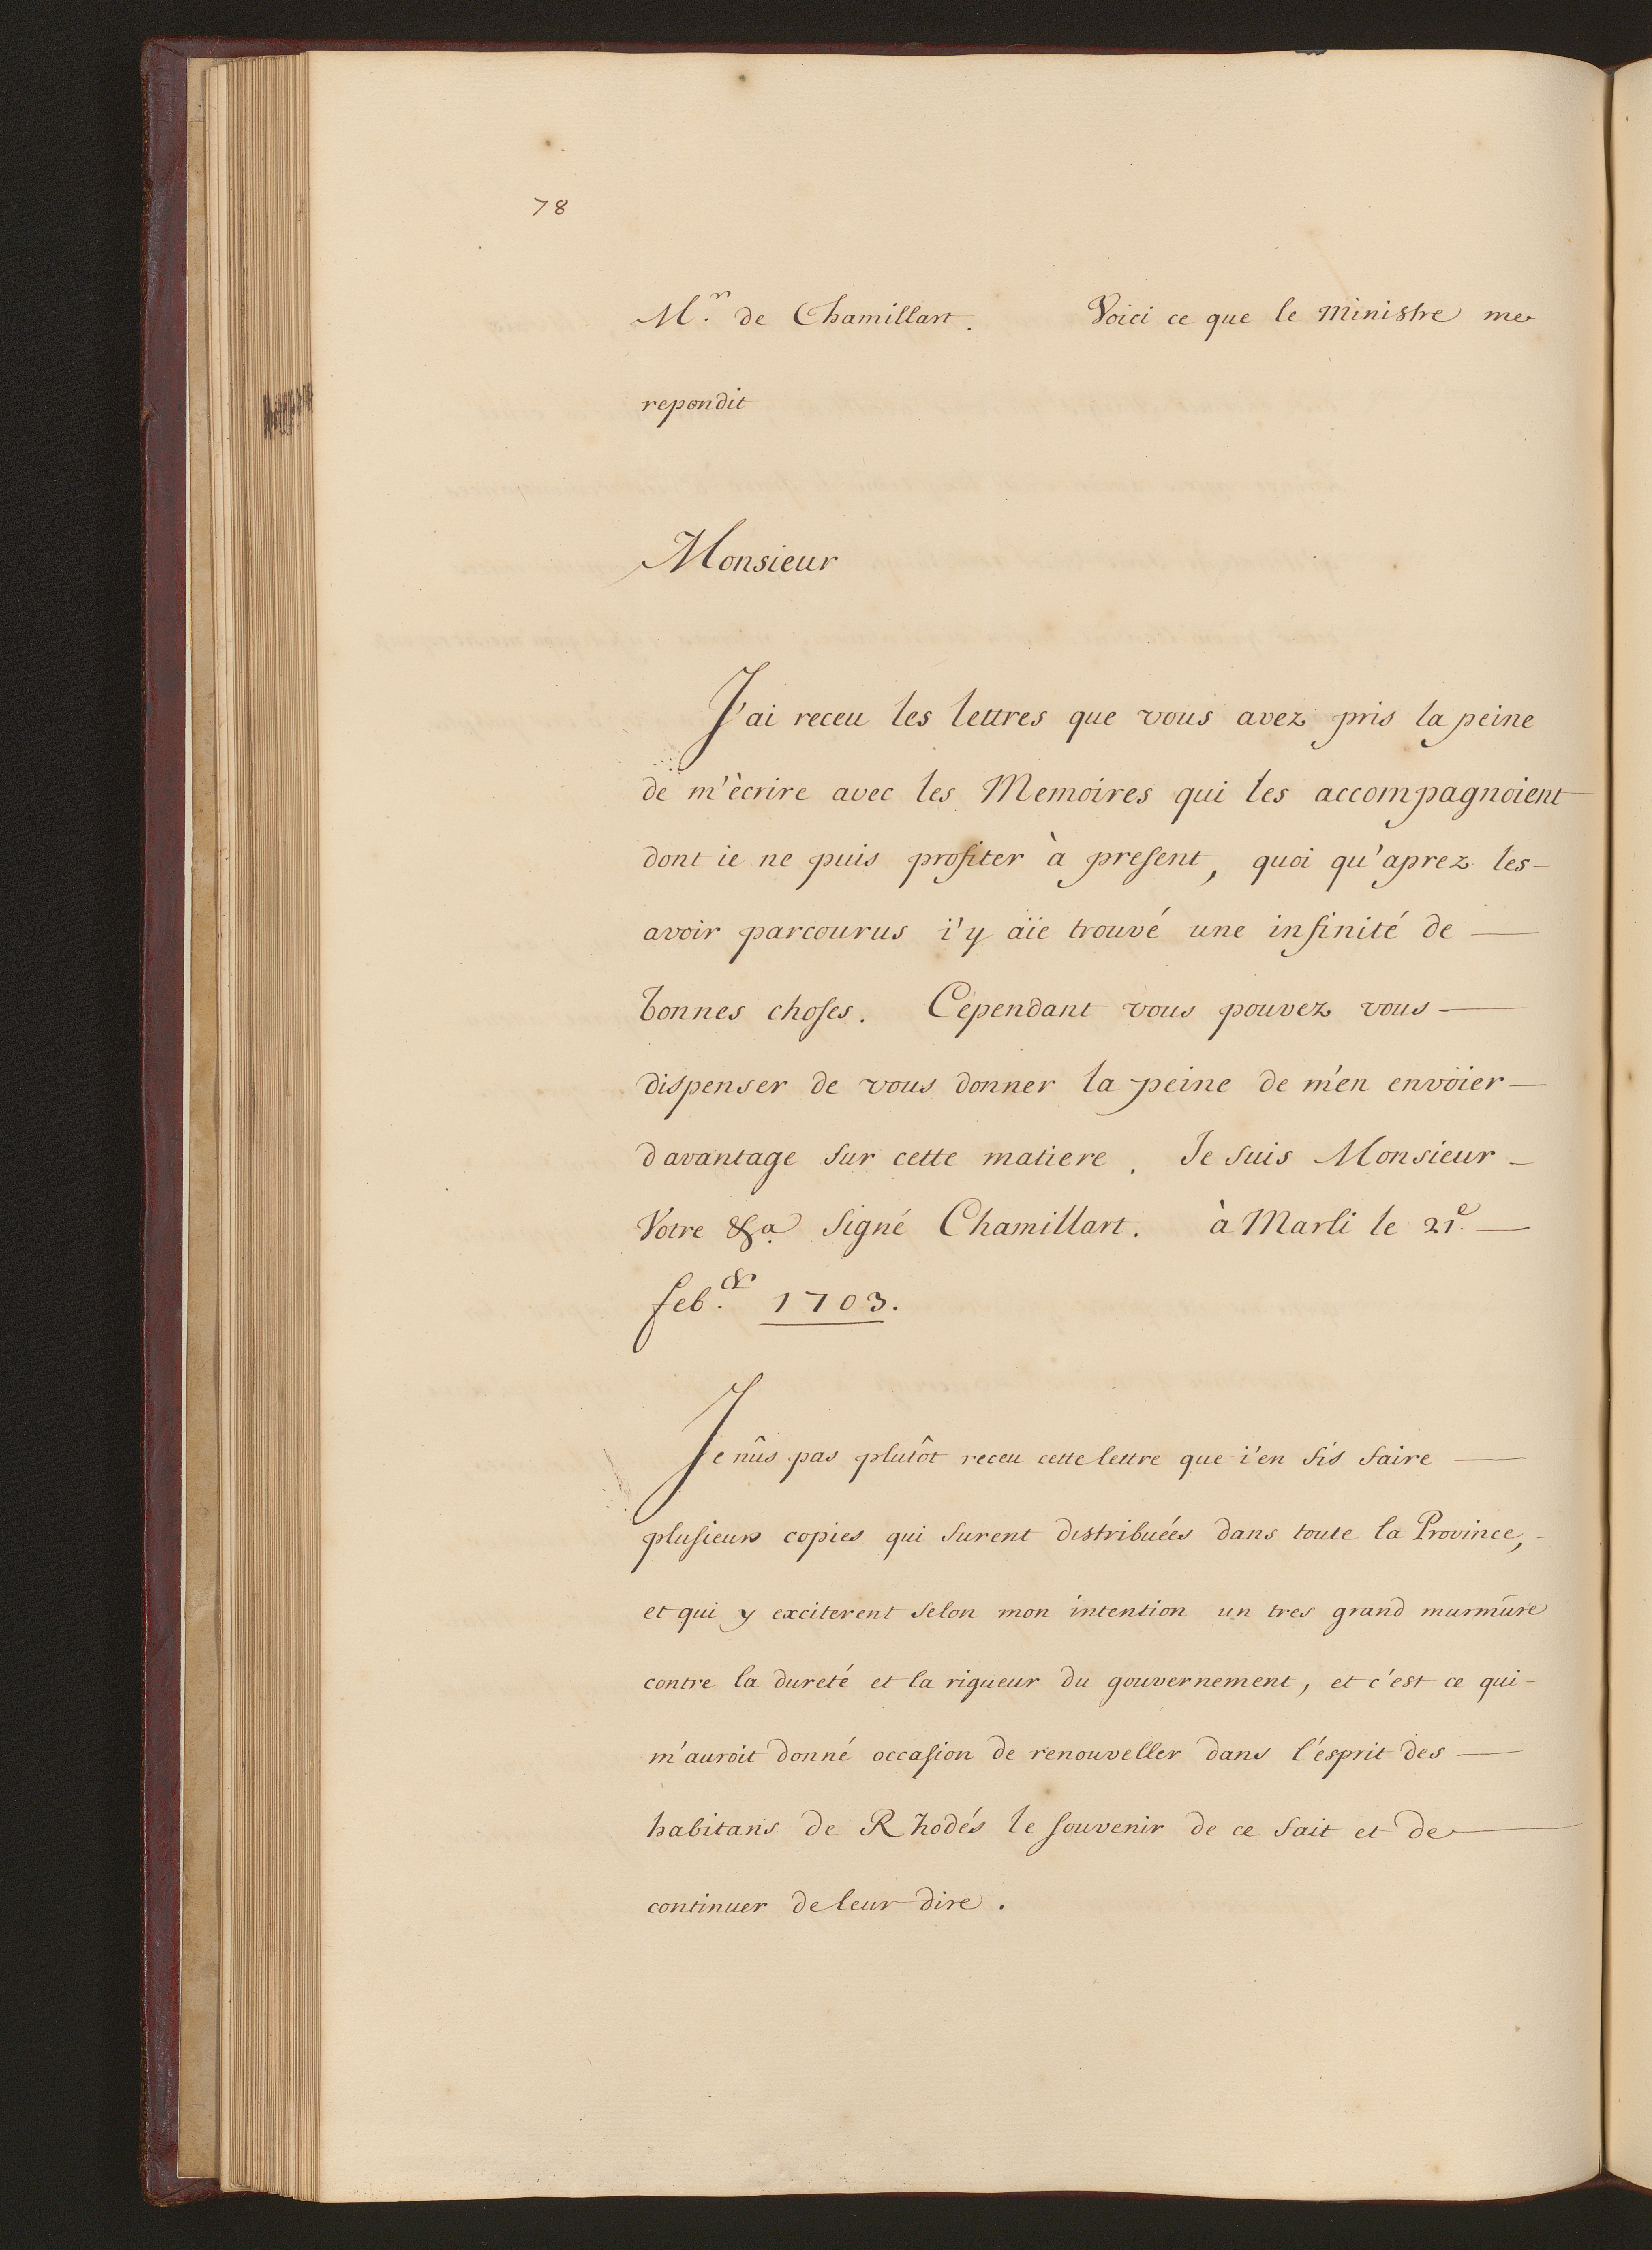 78
Mr. de Chamillart. Voici ce que le Ministre me
repondit
Monsieur
J'ai receu les lettres que vous avez pris la peine
de m'ècrire avec les Memoires qui les accompagnoient
dont ie ne puis profiter à present, quoi qu'aprez les
avoir parcourus i'y aïe trouvé une infinité de
bonnes choses. Cependant vous pouvez vous
dispenser de vous donner la peine de m'en envoïer
davantage sur cette matiere. Je suis Monsieur
Votre &a signé Chamillart. à Marli le 21e.
feb.er 1703.
Je nûs pas plutôt receu cette lettre que i'en fis faire
plusieurs copies qui furent distribuées dans toute la Province,
et qui y exciterent selon mon intention un tres grand murmure
contre la dureté et la rigueur du gouvernement, et c'est ce qui
m'auroit donné occasion de renouveller dans l'ésprit des
habitans de Rhodés le souvenir de ce fait et de
continuer de leur dire.